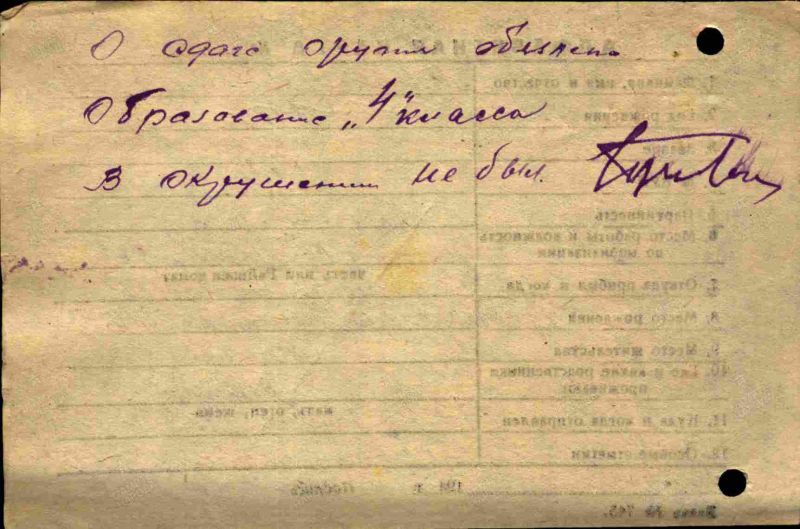 О сдаче оружия объявлено
Образование "4" класса
В окружении не был.
1. Фамилия, имя и отчество
2. Год рождения
3. Звание
5. Партийность
6. Место работы и должность
по мобилизации
7. Откуда прибыл и когда
часть или Райвоенкомат
8. Место рождения
9. Место жительства
10. Где и какие родственники
проживают
мать, отец, жена
11. Куда и когда отправлен
12. Особые отметки
194 г. Подпись
Заказ № 745.